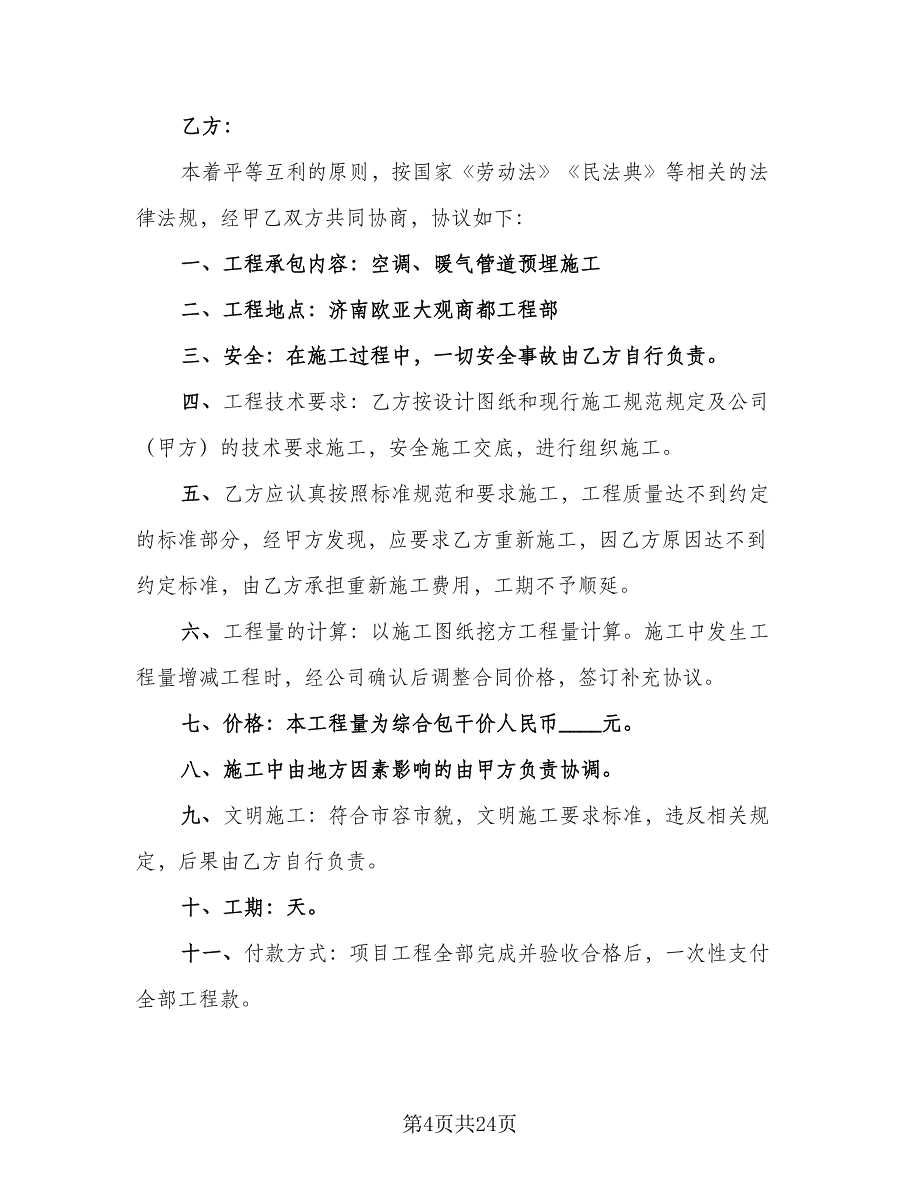 乙方：
本着平等互利的原则，按国家《劳动法》《民法典》等相关的法
律法规，经甲乙双方共同协商，协议如下：
一、工程承包内容：空调、暖气管道预埋施工
二、工程地点：济南欧亚大观商都工程部
三、安全：在施工过程中，一切安全事故由乙方自行负责。
四、工程技术要求：乙方按设计图纸和现行施工规范规定及公司
（甲方）的技术要求施工，安全施工交底，进行组织施工。
五、乙方应认真按照标准规范和要求施工，工程质量达不到约定
的标准部分，经甲方发现，应要求乙方重新施工，因乙方原因达不到
约定标准，由乙方承担重新施工费用，工期不予顺延。
六、工程量的计算：以施工图纸挖方工程量计算。施工中发生工
程量增减工程时，经公司确认后调整合同价格，签订补充协议。
七、价格：本工程量为综合包干价人民币____元。
八、施工中由地方因素影响的由甲方负责协调。
九、文明施工：符合市容市貌，文明施工要求标准，违反相关规
定，后果由乙方自行负责。
十、工期：天。
十一、付款方式：项目工程全部完成并验收合格后，一次性支付
全部工程款。
第4页共24页